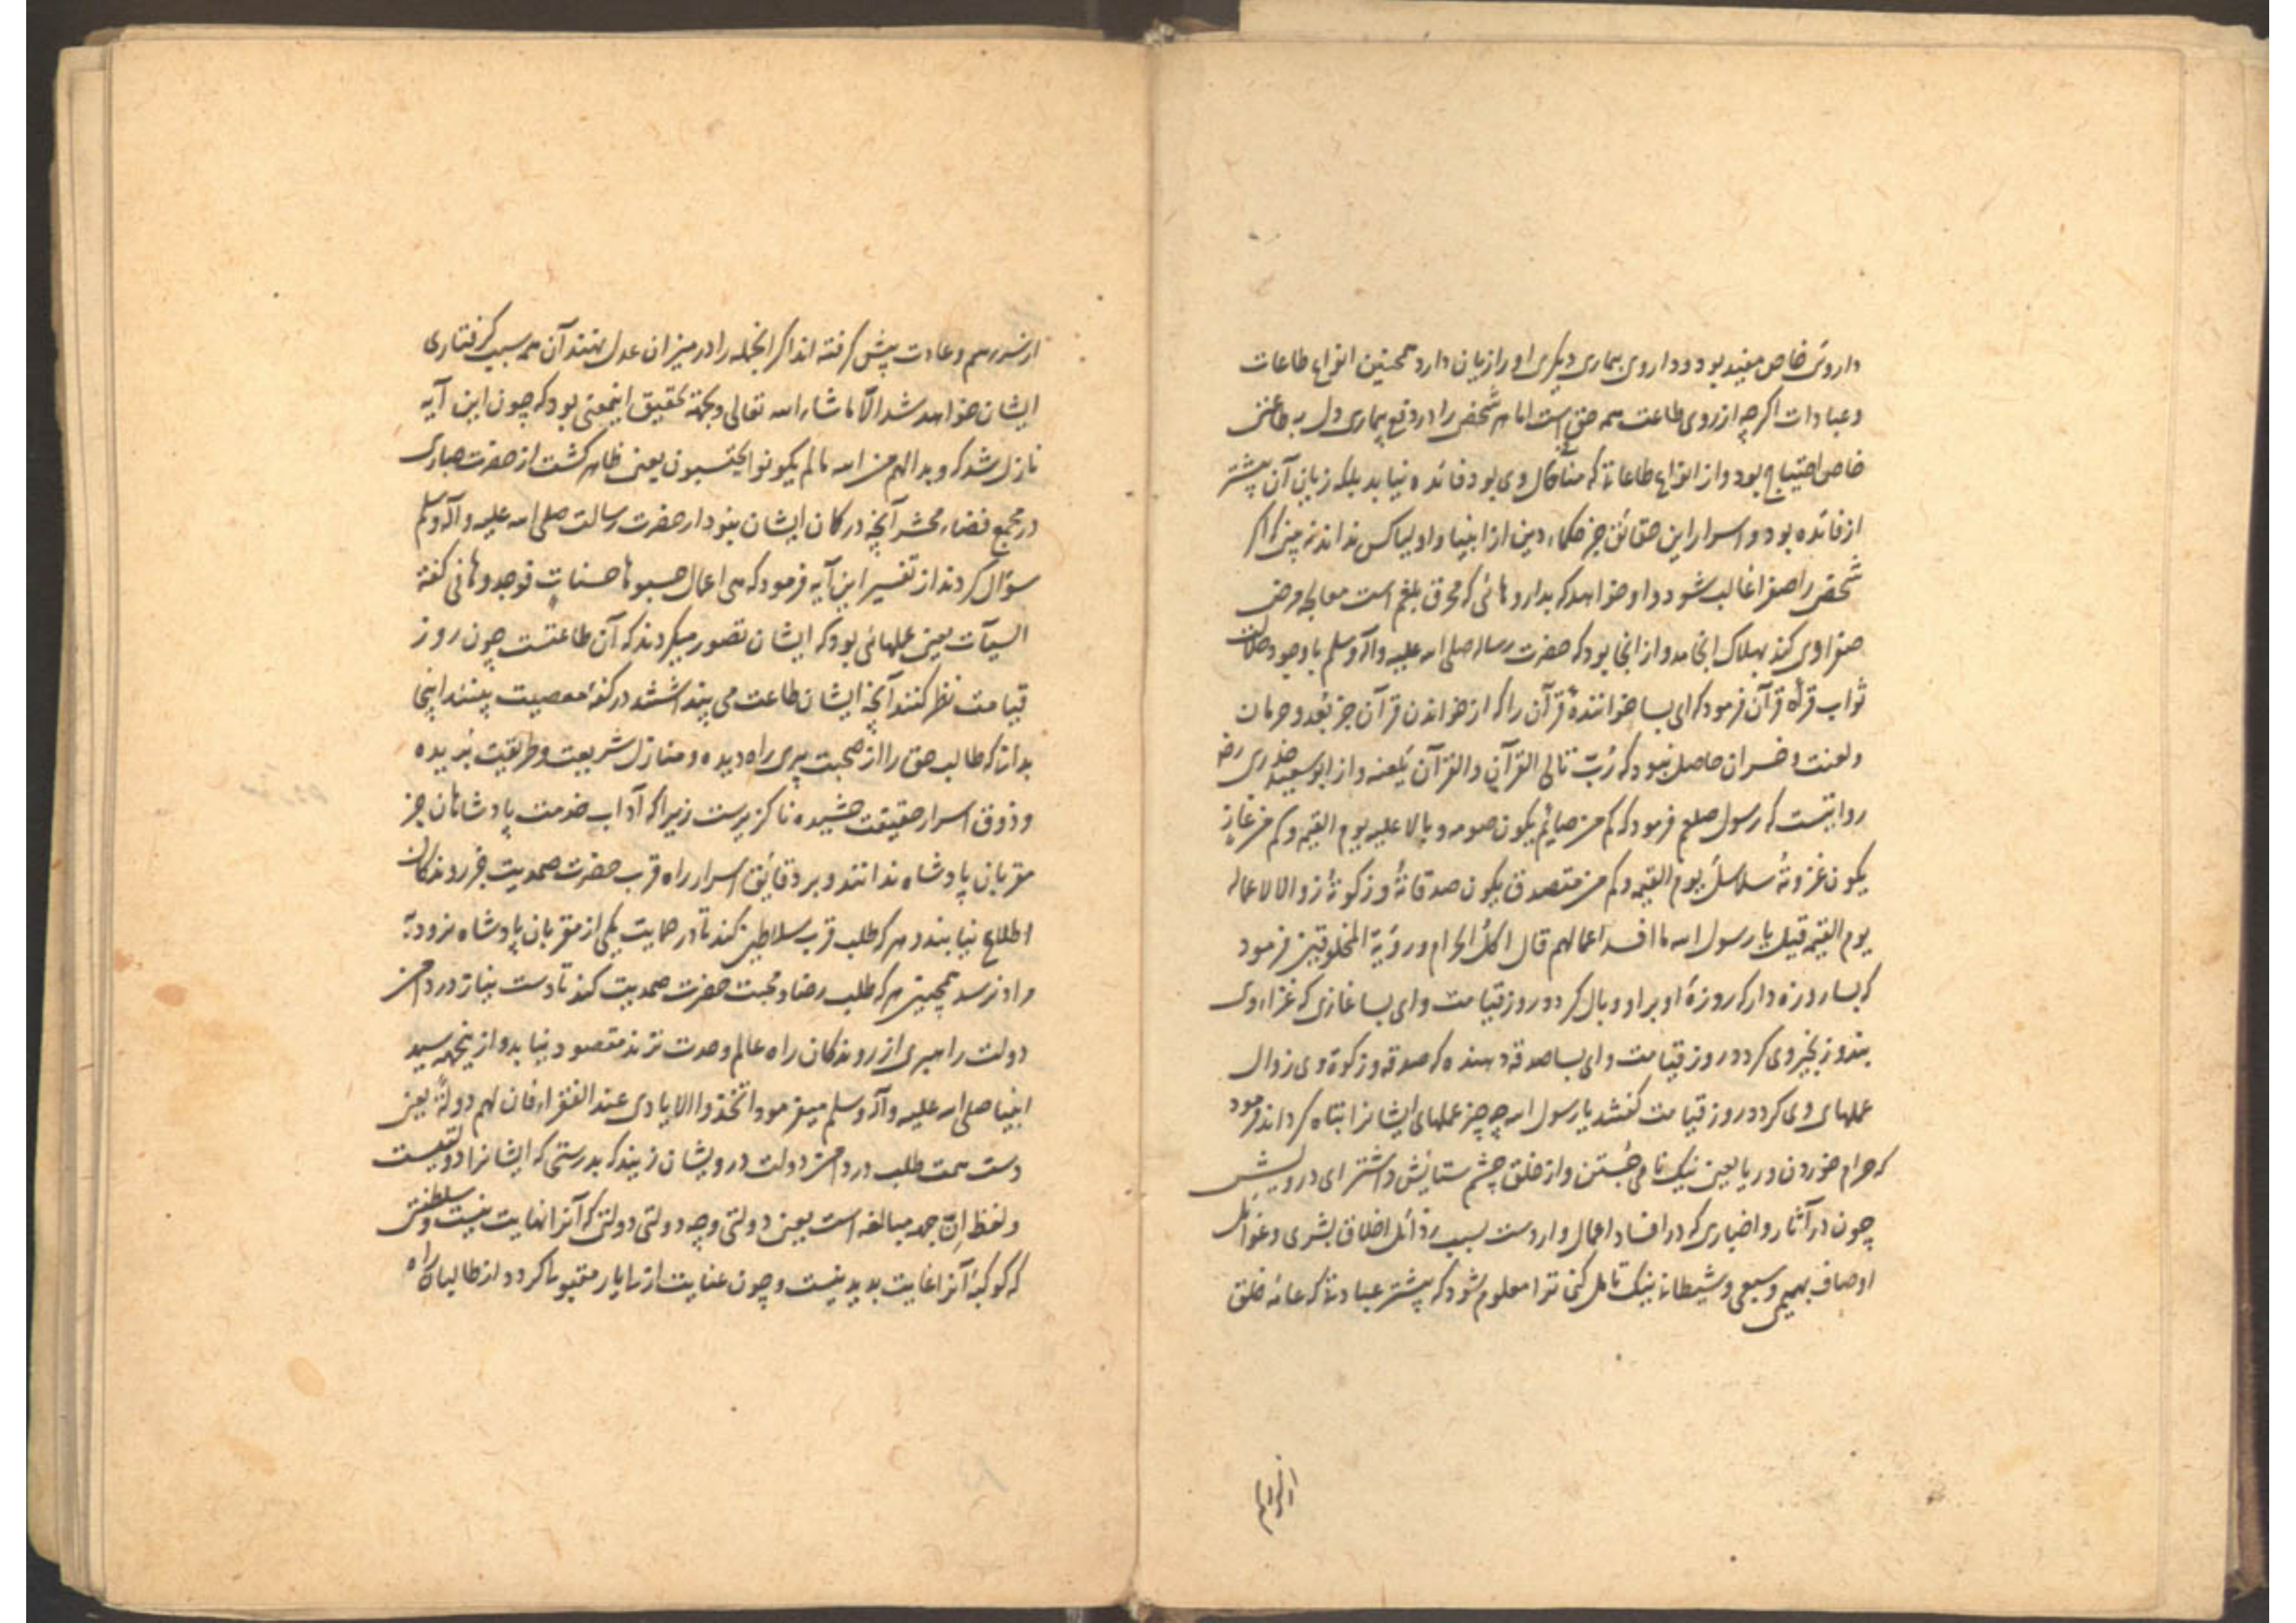 داروئ خاص مفید بود و داروی بیماری دیگری او را زیان دارد همچنین انواع طاعات
و عبادات اگرچه از روی طاعت همه حق است اما هر شخص را در دفع بیماری دل به طاعتی
خاص احتیاج بود و از انواع طاعاتی که منافی حال وی بود فائده نیابد بلکه زیان آن بیشتر
از فائده بود و اسرار این حقائق جز حکماء دین از انبیا و اولیا کس نداند نه بینی که اگر
شخصی را صفرا غالب شود و او خواهد که بداروهائی که محرق بلغم است معالجه مرض
صفراوی کند بهلاک انجامد و از اینجا بود که حضرت رساله صلی الله علیه و آله وسلم با وجود
ثواب قرأة قرآن فرمود که ای بسا خوانندهٔ قرآن را که از خواندن قرآن جز بُعد و حرمان
و لعنت و خسران حاصل نبود که رُبّ تالی القرآنِ والقرآن یلعنه و از ابو سعید خدری رضه
روایتست که رسول صلعم فرمود که کم من صائم یکون صومه وبالا علیه یوم القیمه وکم من غازٍ
یکون غزوتهُ سلاسلَ یوم القیمه وکم من متصدق یکون صدقاتهُ وزکوتهُ زوالا لاعماله
یوم القیمه قیل یا رسول الله ما افسد اعمالهم قال اکلُ الحرام ورؤیة المخلوقین فرمود
که بسا روزه دار که روزهٔ او بر او وبال گردد روز قیامت و ای بسا غازی که غزاء وی
بند و زنجیر وی گردد روز قیامت و ای بسا صدقه دهنده که صدقه و زکوة وی زوال
عملهای وی گردد روز قیامت گفتند یا رسول الله چه چیز عملهای ایشانرا تباه گرداند فرمود
که حرام خوردن و ریا یعنی نیک نامی جُستن و از خلق چشم ستایش داشتن ای درویش
چون در آثار و اخباری که در افساد اعمال واردست بسبب رذائل اخلاق بشری و غوائل
اوصاف بهیمی و سبعی و شیطانی نیک تامل کنی ترا معلوم شود که بیشتر عباداتی که عامهٔ خلق
از سر رسم
از سر رسم و عادت پیش گرفته اند اگر آنجمله را در میزان عدل نهند آن همه سبب گرفتاری
ایشان خواهد شد الّا ما شاء الله تعالی و بجهة تحقیق اینمعنی بود که چون این آیه
نازل شد که و بدا لهم من الله ما لم یکونوا یحتسبون یعنی ظاهر گشت از حضرت جباری
در مجمع فضاء محشر آنچه در گمان ایشان نبود از حضرت رسالت صلی الله علیه و آله وسلم
سؤال کردند از تفسیر این آیه فرمود که هی اعمال حسبوها حسناتٍ فوجدوها فی کفة
السیآت یعنی عملهائی بود که ایشان تصور میکردند که آن طاعتست چون روز
قیامت نظر کنند آنچه ایشان طاعت می پنداشتند در کفهٔ معصیت بینند اینجا
بدانی که طالب حق را از صحبت پیری راه دیده و منازل شریعت و طریقت بریده
و ذوق اسرار حقیقت چشیده ناگزیرست زیرا که آداب خدمت پادشاهان جز
مقربان پادشاه ندانند و بر دقائق اسرار راه قرب حضرت صمدیت جز روندگان
اطلاع نیابند و هر که طلب قرب سلاطین کند تا در حمایت یکی از مقربان پادشاه نرود به
مراد نرسد همچنین هر که طلب رضا و محبت حضرت صمدیت کند تا دست نیاز در دامن
دولت راهبری از روندگان راه عالم وحدت نزند مقصود نیابد و از اینجهه سید
انبیا صلی الله علیه و آله وسلم میفرمود اتخذوا الایادی عند الفقراء فان لهم دولةً یعنی
دست همت طلب در دامن دولت درویشان زنید که بدرستی که ایشانرا دولتیست
و لفظ اِنّ جهه مبالغه است یعنی دولتی و چه دولتی دولتی که آنرا نهایت نیست و سلطنتی
که کوکبهٔ آنرا غایت پدید نیست و چون عنایت ازلی یار مقبولی گردد از طالبان راه